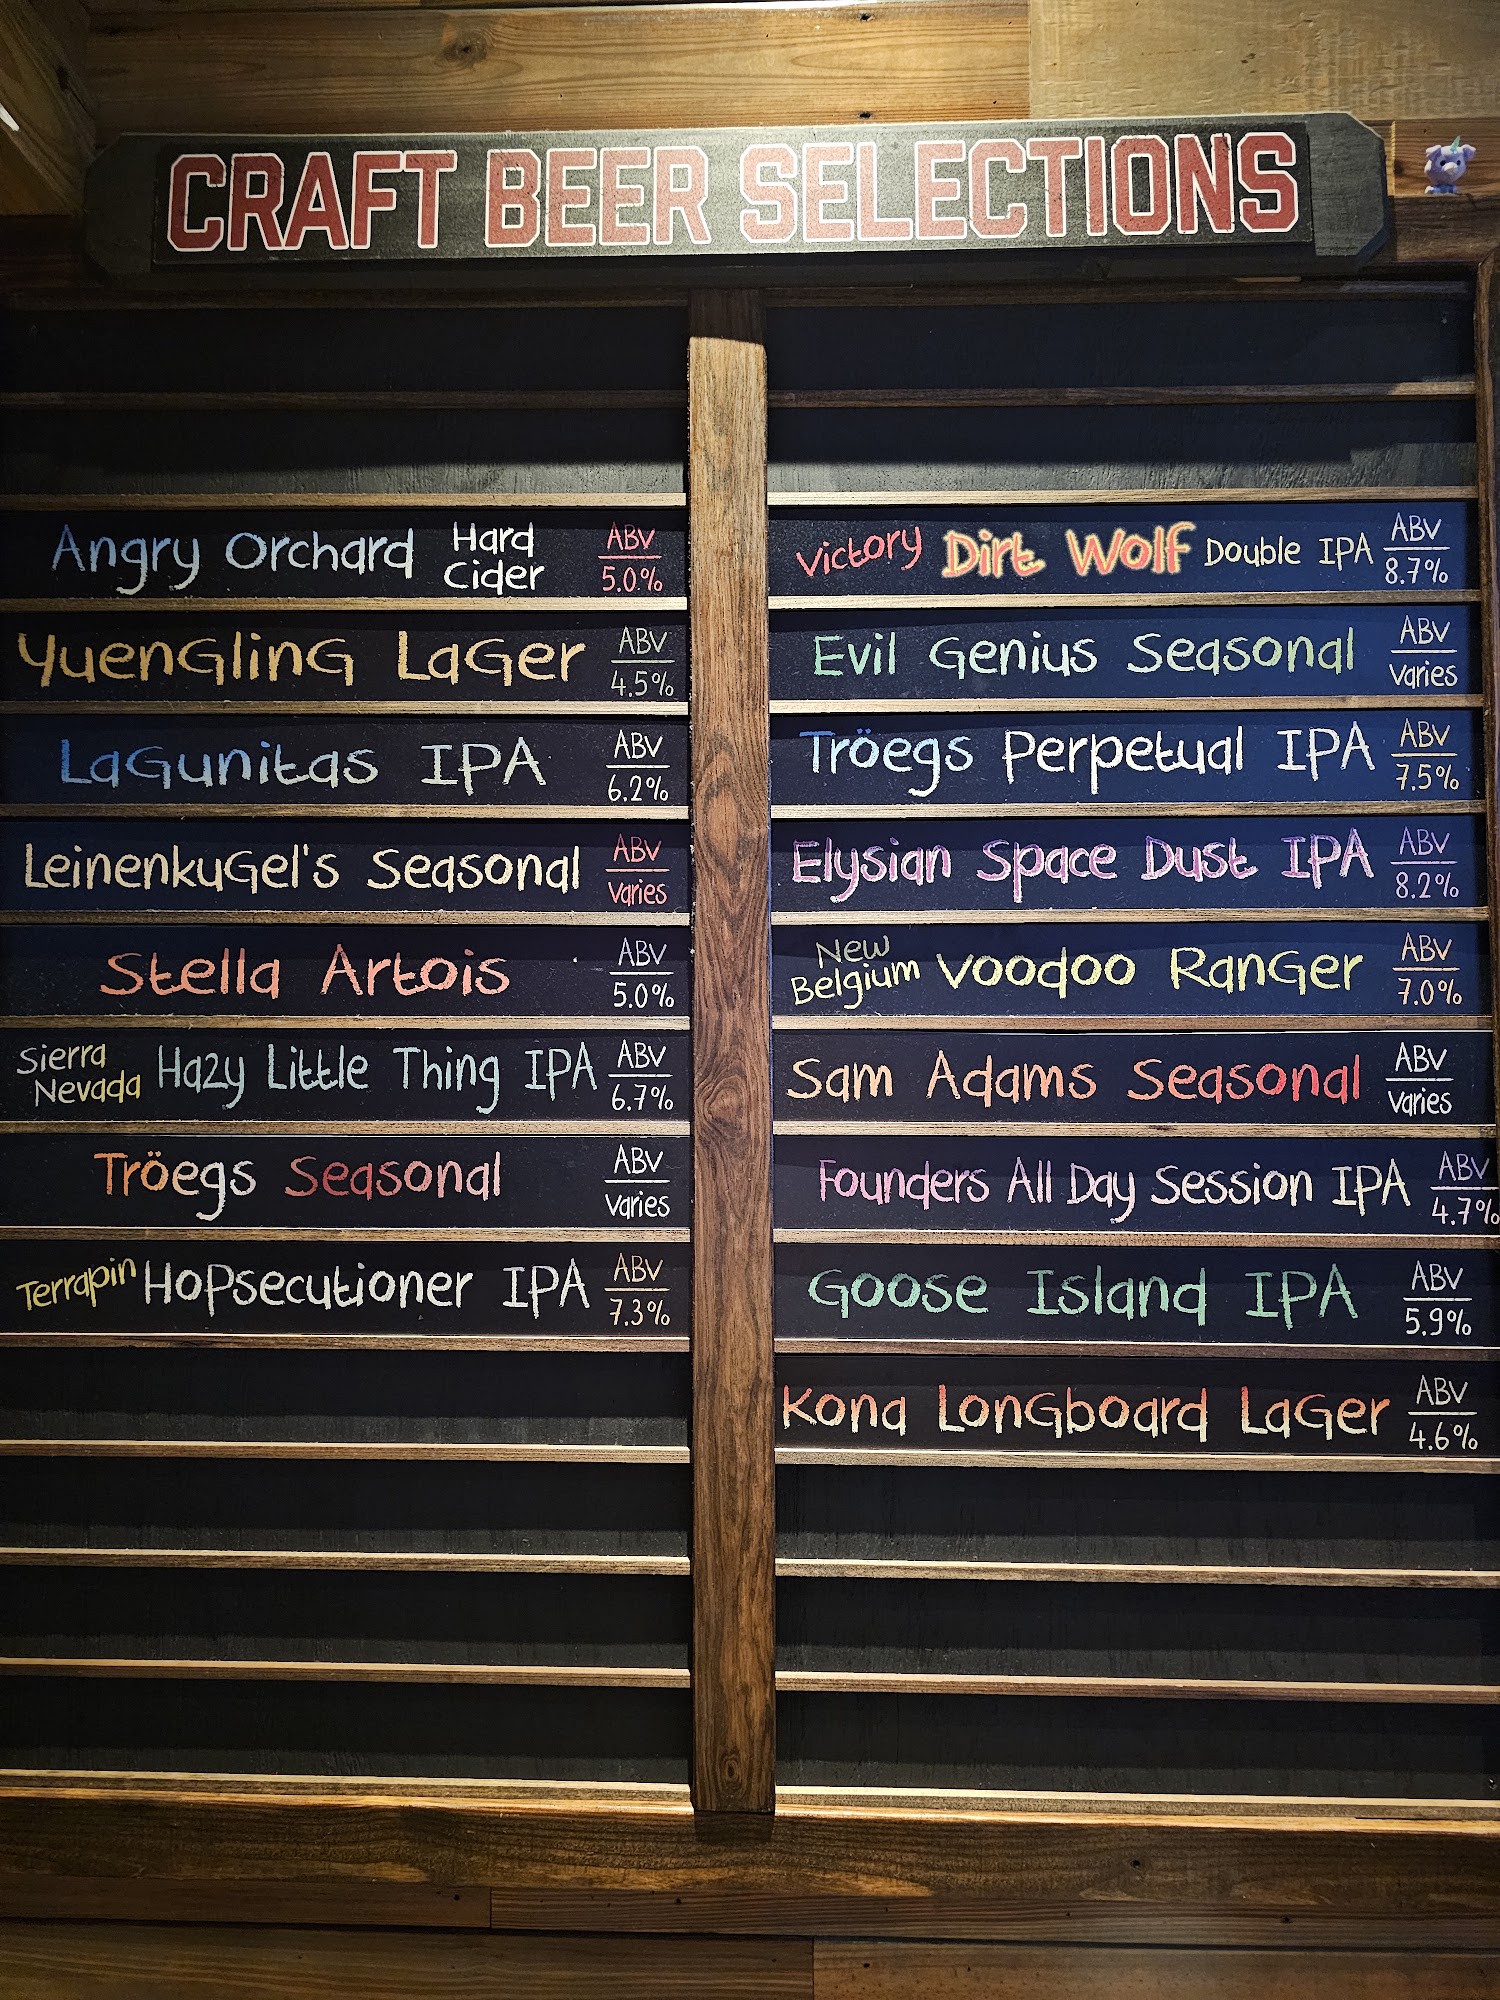 CRAFT BEER SELECTIONS
Angry Orchard Hard Cider ABV 5.0%
Yuengling Lager ABV 4.5%
Lagunitas IPA ABV 6.2%
Leinenkugel's Seasonal ABV varies
Stella Artois ABV 5.0%
Sierra Nevada Hazy Little Thing IPA ABV 6.7%
Tröegs Seasonal ABV varies
Terrapin Hopsecutioner IPA ABV 7.3%
Victory Dirt Wolf Double IPA ABV 8.7%
Evil Genius Seasonal ABV varies
Tröegs Perpetual IPA ABV 7.5%
Elysian Space Dust IPA ABV 8.2%
New Belgium Voodoo Ranger ABV 7.0%
Sam Adams Seasonal ABV varies
Founders All Day Session IPA ABV 4.7%
Goose Island IPA ABV 5.9%
Kona Longboard Lager ABV 4.6%